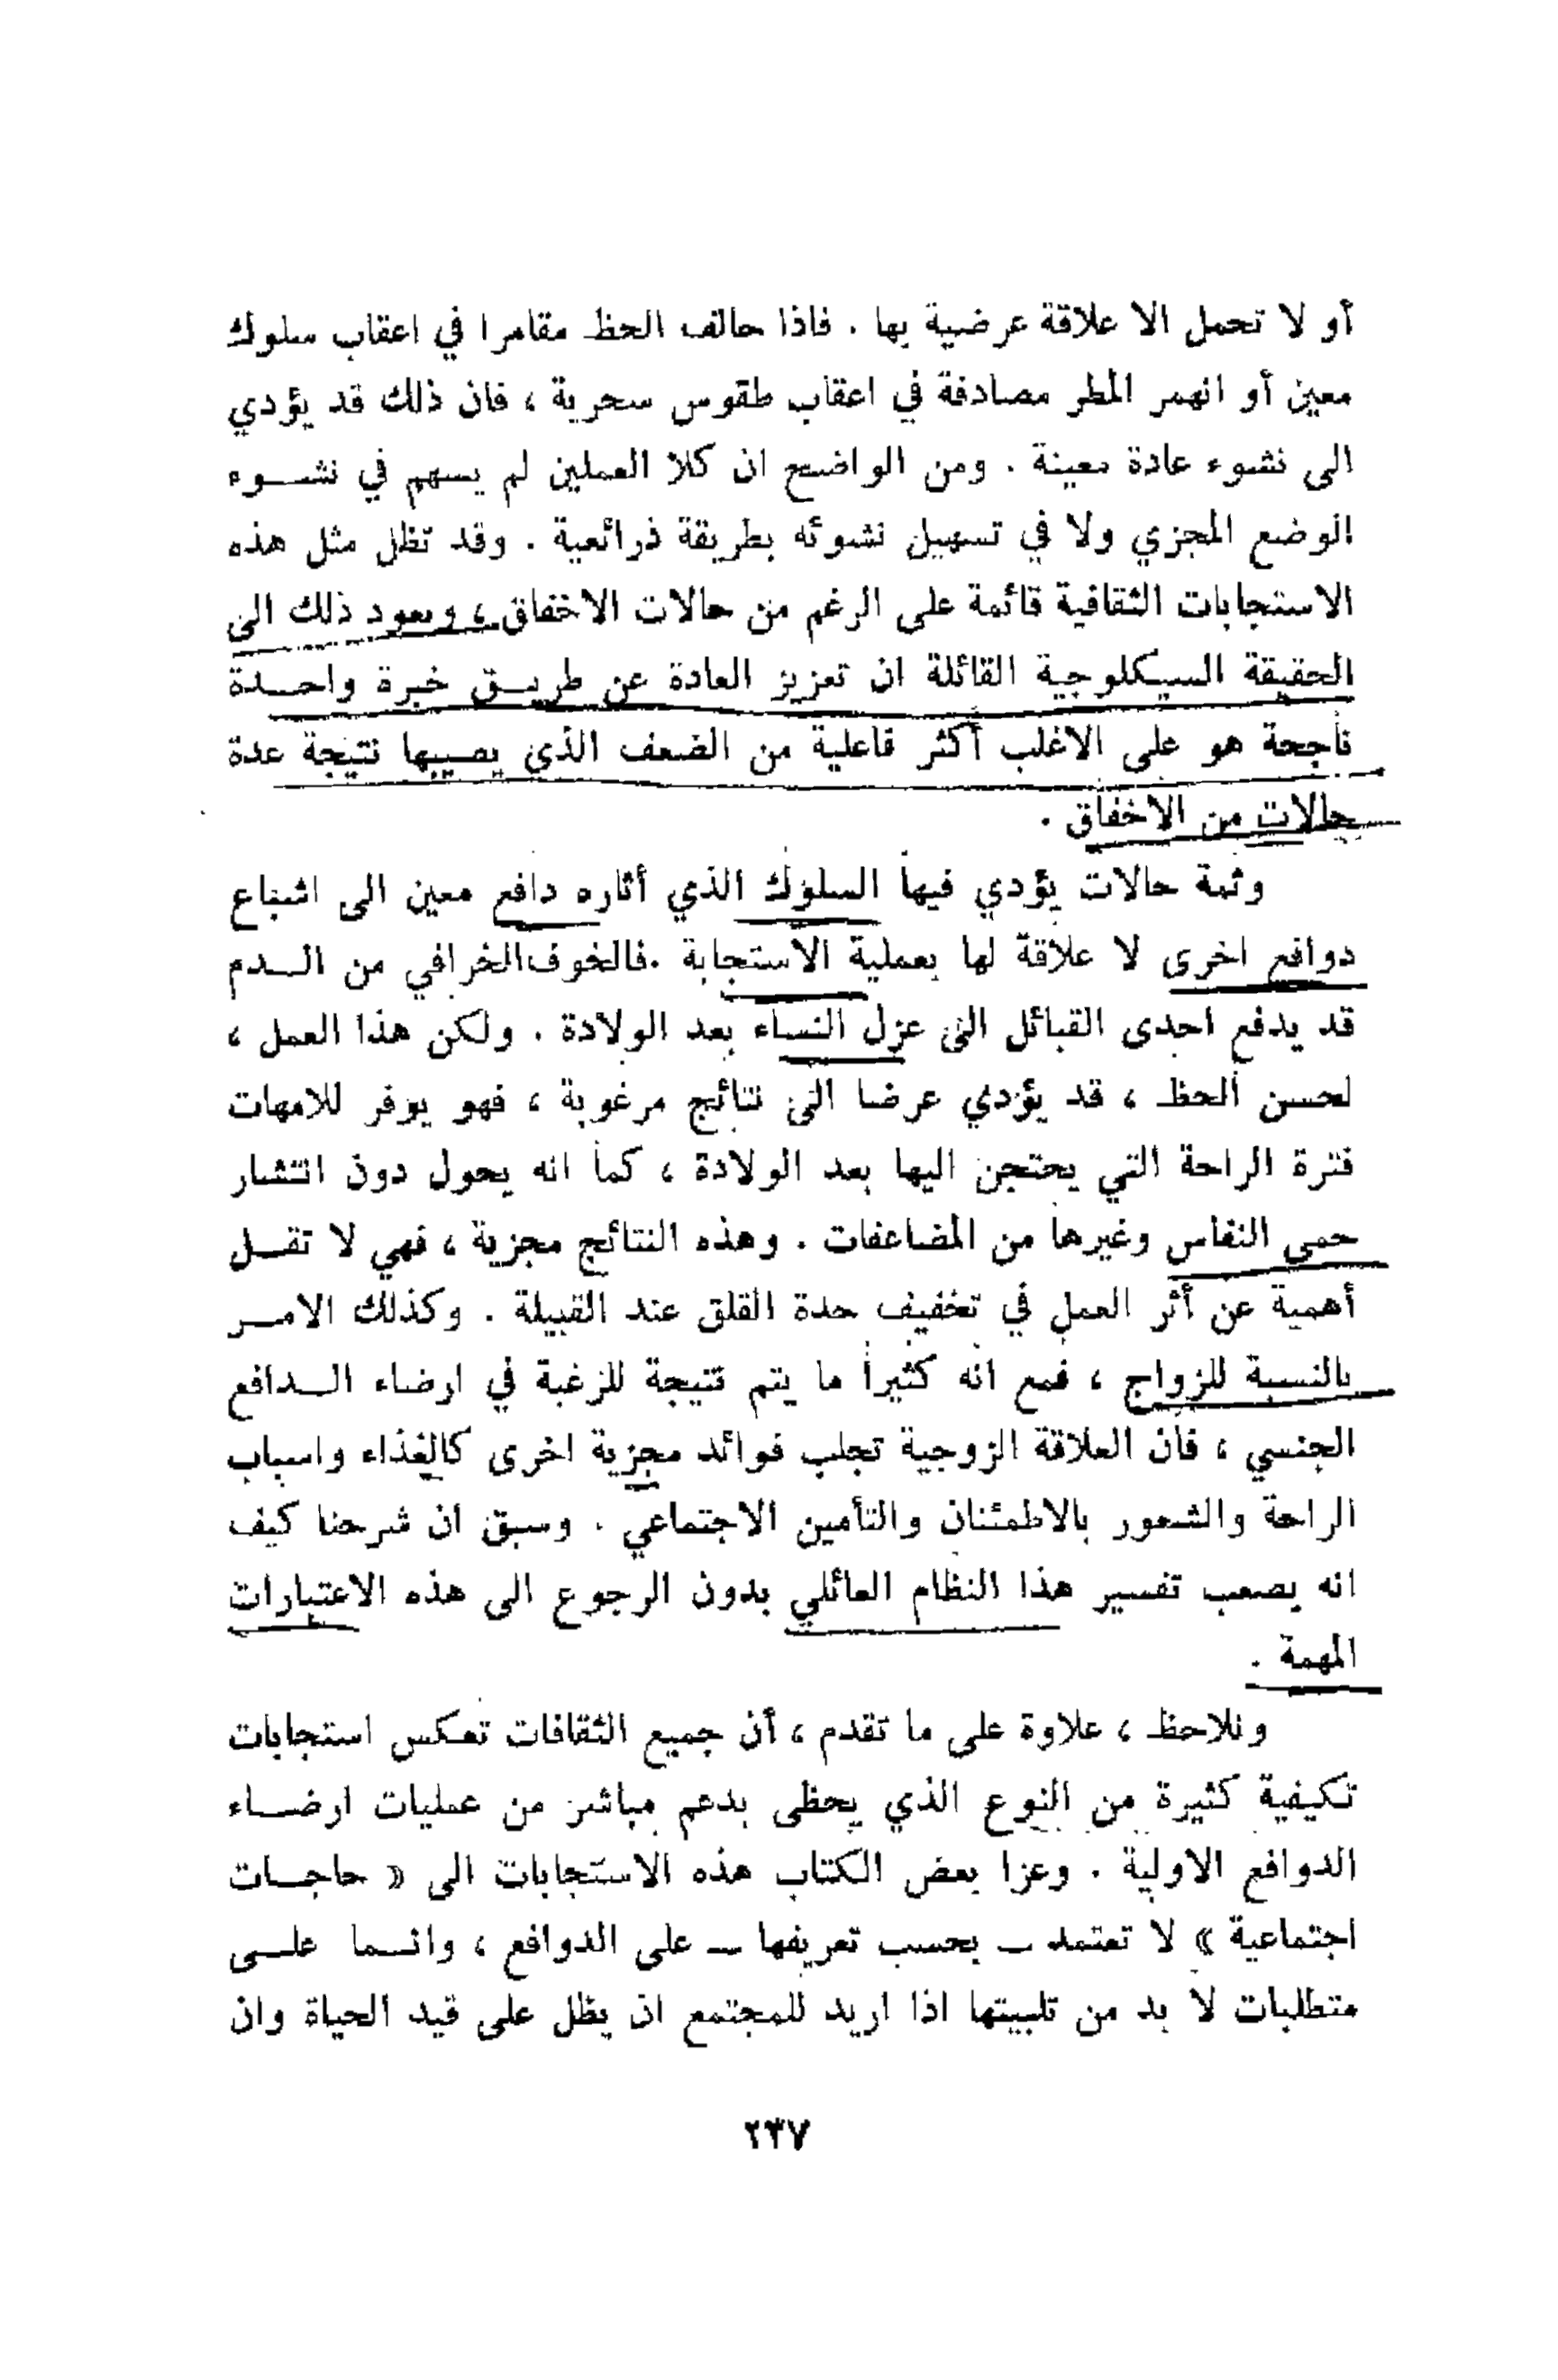 أو لا تحمل الا علاقة عرضية بها . فاذا حالف الحظ مقامرا في اعقاب سلوك
معين أو انهمر المطر مصادفة في اعقاب طقوس سحرية ، فان ذلك قد يؤدي
الى نشوء عادة معينة . ومن الواضح ان كلا العملين لم يسهم في نشوء
الوضع المجزي ولا في تسهيل نشوئه بطريقة ذرائعية . وقد تظل مثل هذه
الاستجابات الثقافية قائمة على الرغم من حالات الاخفاق ، ويعود ذلك الى
الحقيقة السيكلوجية القائلة ان تعزيز العادة عن طريق خبرة واحدة
ناجحة هو على الاغلب أكثر فاعلية من الضعف الذي يصيبها نتيجة عدة
حالات من الاخفاق .
وثمة حالات يؤدي فيها السلوك الذي أثاره دافع معين الى اشباع
دوافع اخرى لا علاقة لها بعملية الاستجابة . فالخوف الخرافي من الدم
قد يدفع احدى القبائل الى عزل النساء بعد الولادة . ولكن هذا العمل ،
لحسن الحظ ، قد يؤدي عرضا الى نتائج مرغوبة ، فهو يوفر للامهات
فترة الراحة التي يحتجن اليها بعد الولادة ، كما انه يحول دون انتشار
حمى النفاس وغيرها من المضاعفات . وهذه النتائج مجزية ، فهي لا تقل
أهمية عن أثر العمل في تخفيف حدة القلق عند القبيلة . وكذلك الامر
بالنسبة للزواج ، فمع انه كثيرا ما يتم نتيجة للرغبة في ارضاء الدافع
الجنسي ، فان العلاقة الزوجية تجلب فوائد مجزية اخرى كالغذاء واسباب
الراحة والشعور بالاطمئنان والتأمين الاجتماعي . وسبق ان شرحنا كيف
انه يصعب تفسير هذا النظام العائلي بدون الرجوع الى هذه الاعتبارات
المهمة .
ونلاحظ ، علاوة على ما تقدم ، أن جميع الثقافات تعكس استجابات
تكيفية كثيرة من النوع الذي يحظى بدعم مباشر من عمليات ارضاء
الدوافع الاولية . وعزا بعض الكتاب هذه الاستجابات الى « حاجات
اجتماعية » لا تعتمد ــ بحسب تعريفها ــ على الدوافع ، وانما على
متطلبات لا بد من تلبيتها اذا اريد للمجتمع ان يظل على قيد الحياة وان
٢٣٧